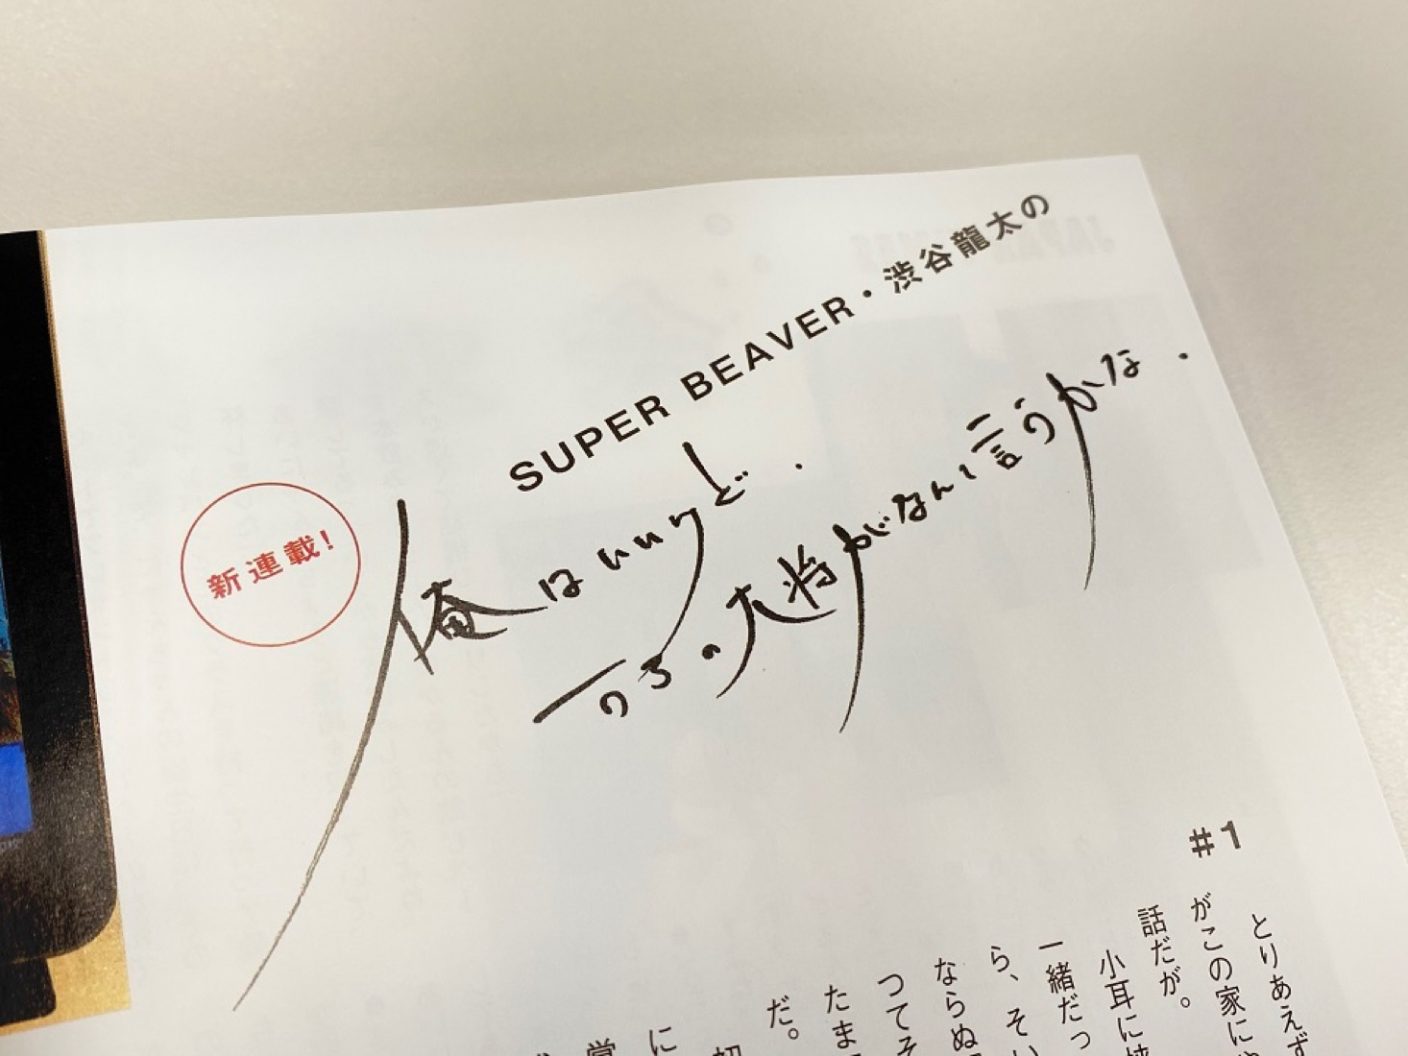 SUPER BEAVER・渋谷龍太の
新連載!
俺はいいけど.
うちの大将がなんて言うかな.
#1
とりあえず
がこの家に
話だが。
小耳に
一緒だっ
ら、そい
ならぬ
つてそ
たま
だ。
に